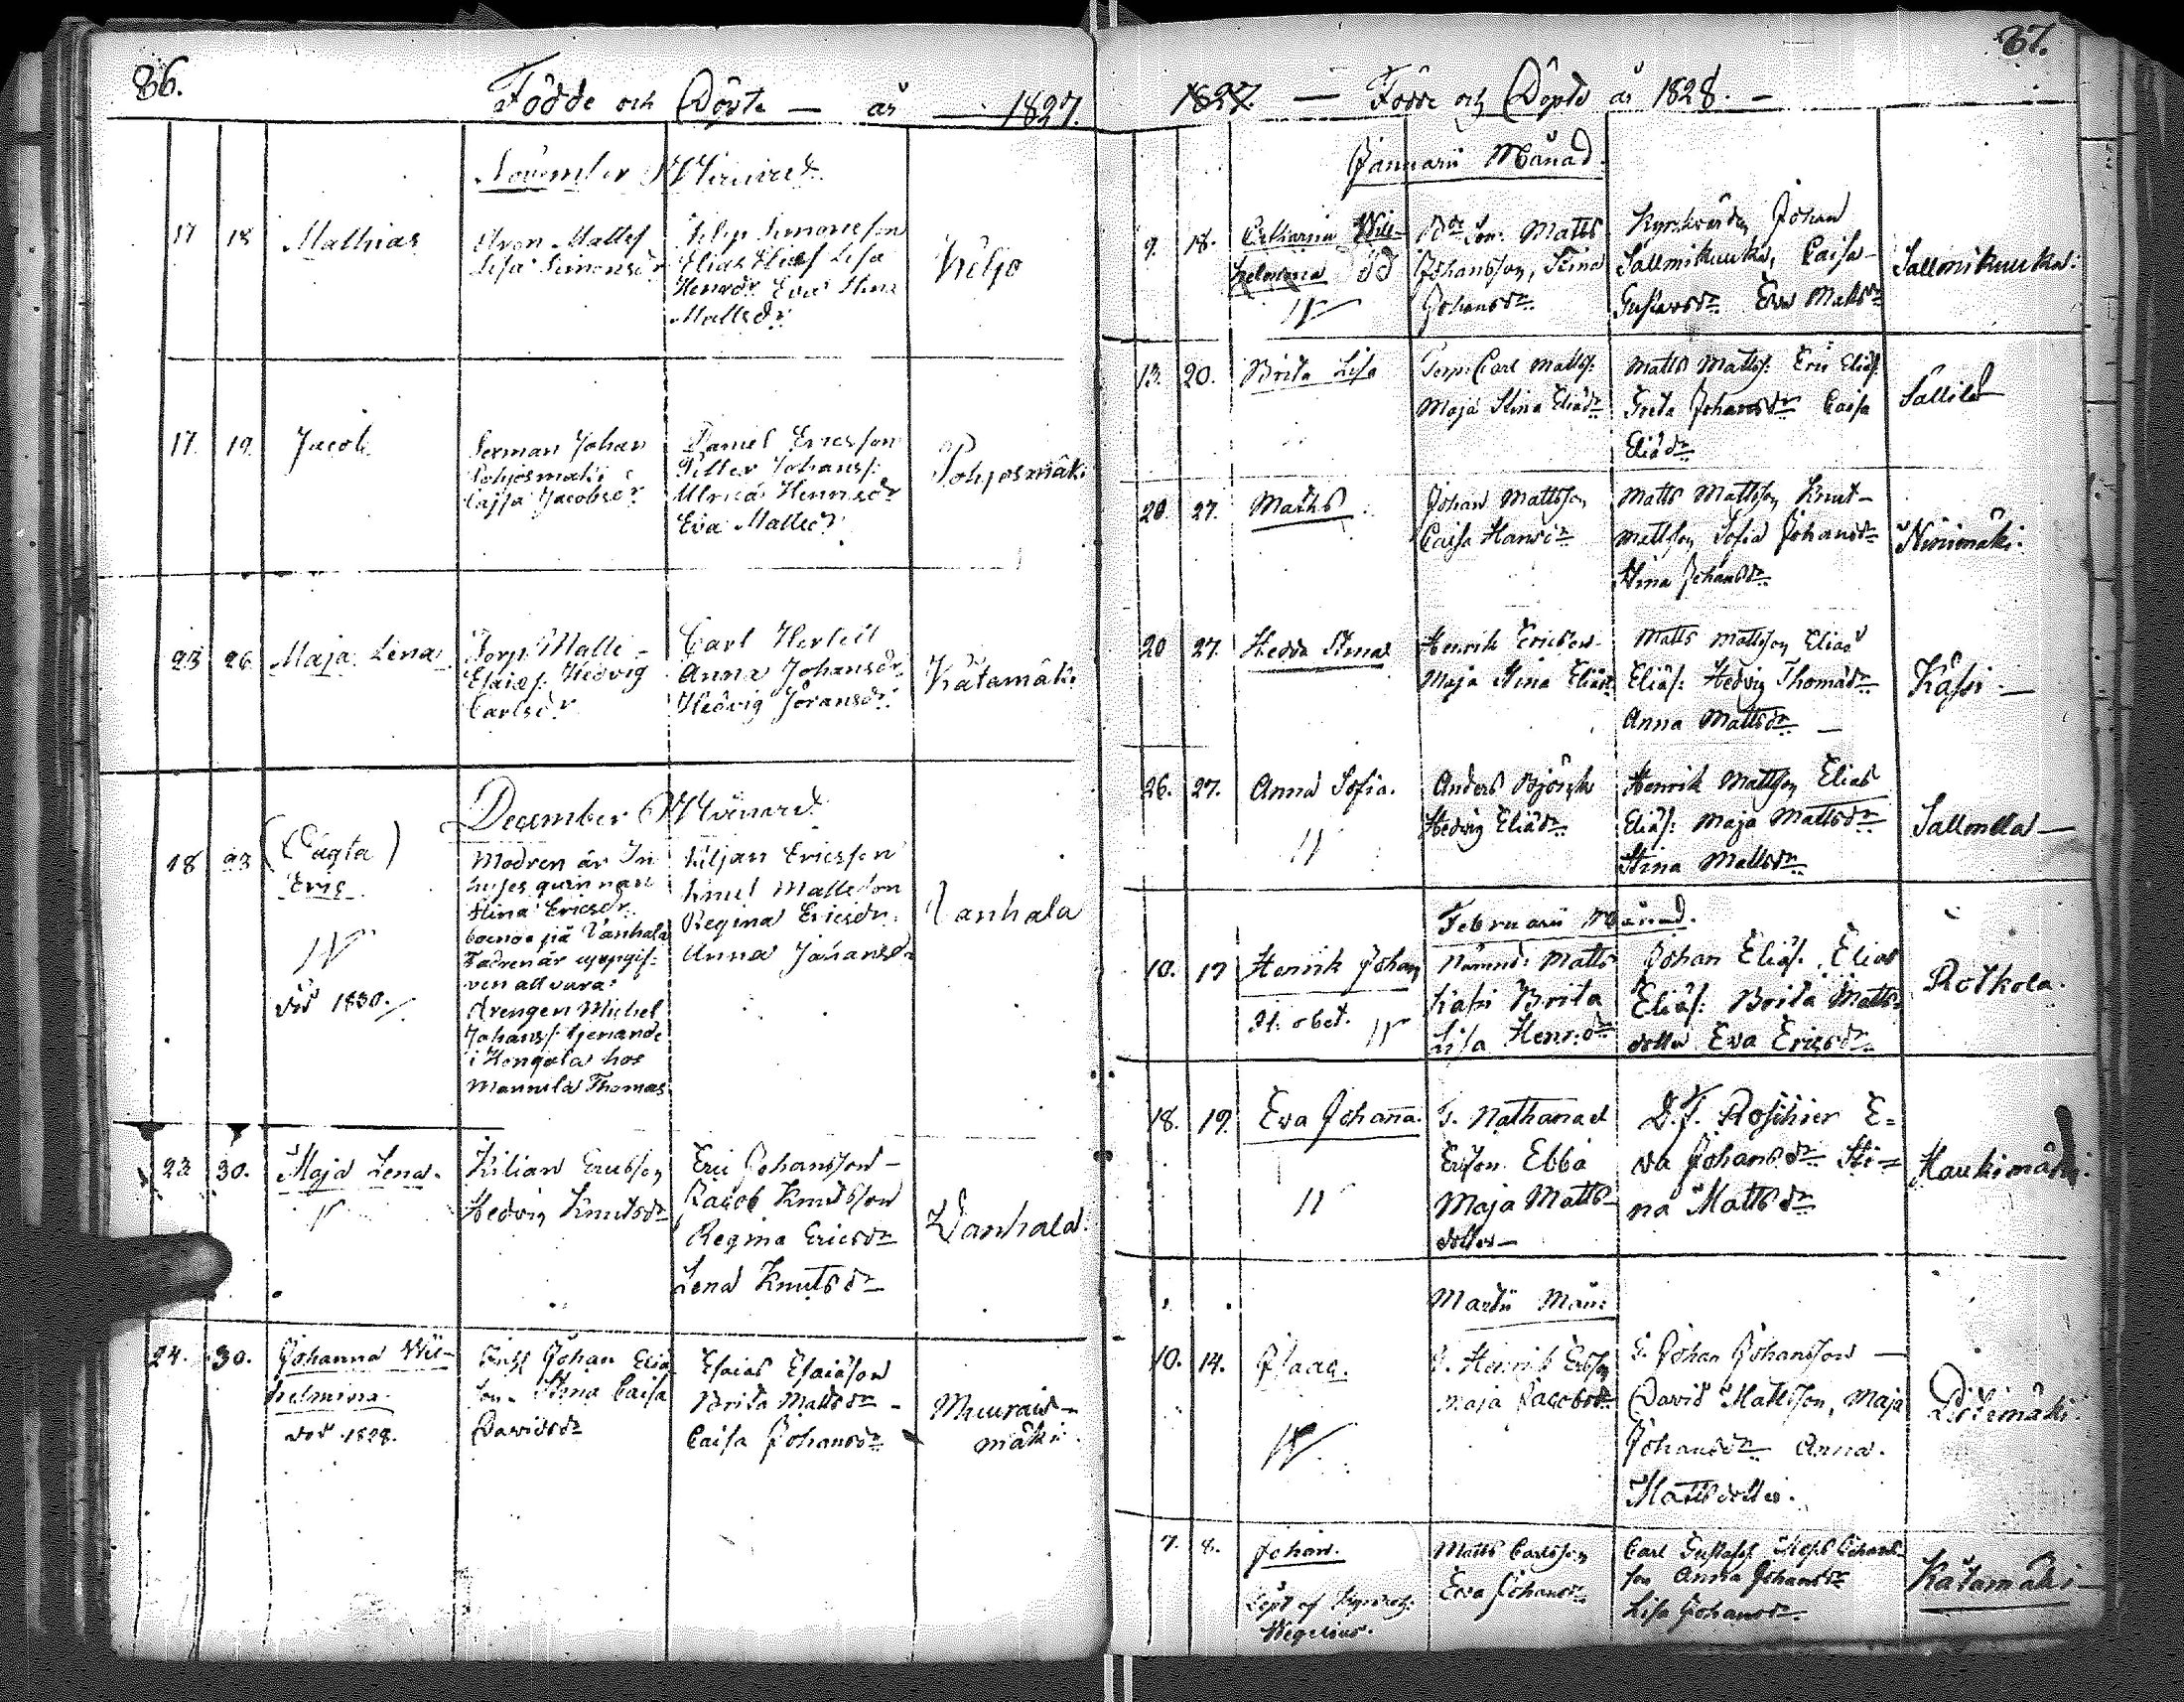 86.
Födde och Döpte — år — 1827.
November Månad
17 18 Mathias
Lisa Simonsdr
Filip Simonsson
Elias Eliæs Lisa
Henrdr Eva Stina
Mattsdr
Keljo
17. 19. Jacob
Johan
Pohjosmäki
Cajsa Jacobsdr
Daniel Ericsson
Petter Johanss:
Ulrica Henrsdr
Eva Mattsdr
Pohjosmäki
23 26 Maja Lena
Torp. Matts
Esaias: Hedvig
Carlsdr
Carl Hertell
Anna Johansdr
Hedvig Göransdr
Kätamäki
December Månad
18 23 (Oägta)
Eric
död 1830.
Modren är In-
hyses quinnan
Stina Ericsdr
boende på Vanhala
Fadren är uppgif-
ven att vara:
Drengen Michel
Johanss: tjenande
i Hongola hos
Mannila Thomas
Kiljan Ericsson
Knut Mattsson
Regina Ericsdr
Anna Johansdr
Vanhala
23 30. Maja Lena.
Kilian Ericsson
Hedvig Knutsdr
Eric Johansson —
Jacob Knutsson
Regina Ericsdr
Lena Knutsdr
Vanhala.
24. 30. Johanna Wil-
helmina
död 1828.
Johan Elia
son. Stina Caisa
Davidsdr
Esaias Esaiasson
Brita Mattsdr —
Caisa Johansdr
Muurais-
mäki.
87.
1827. — Födde och Döpte år 1828. —
Januarii Månad.
9. 18. Catharina Wil-
helmina död
Matts
Johansson, Stina
Johansdr
Kyrkvärden Johan
Sallmikuukka, Caisa
Gustavsdr Eva Mattsdr
Sallmikuukka.
13. 20. Brita Lisa
Torp: Carl Mattss:
Maja Stina Eliædr
Matts Mattss: Eric Eliæs:
Greta Johansdr Caisa
Eliædr
Sallila
20. 27. Matts
Johan Mattsson
Caisa Hansdr
Matts Mattsson Knut —
Mattsson Sofia Johansdr
Stina Johansdr
Niinimäki.
20 27. Hedda Stina
Henrik Ericsson
Maja Stina Eliædr
Matts Mattsson Elias
Eliæs: Hedvig Thomædr
Anna Mattsdr —
Kässi —
26. 27. Anna Sofia.
Anders Björk
Hedvig Eliædr
Henrik Mattsson Elias
Eliæs: Maja Mattsdr
Stina Mattsdr
Sallmela —
Februarii Månad.
10. 17 Henrik Johan
Nämnd: Matts
Kässi Brita
Lisa Henrsdr
Johan Eliæs. Elias
Eliæs: Brita Matts
dotter Eva Ericsdr
Rotkola.
18. 19. Eva Johana.
T. Nathanael
Ericson Ebba
Maja Matts-
dotter —
D. F. Roschier E=
va Johansdr Sti=
na Mattsdr
Haukimäki.
Martii Mån:
10. 14. Isaac.
T. Henrik Ericsson
Maja Jacobsdr
T. Johan Johansson —
David Mattsson, Maja
Johansdr Anna
Mattsdotter.
7. 8. Johan.
Döpt af
Wegelius.
Matts Carlsson
Eva Johansdr
Carl Gustafss
son Anna Johansdr
Lisa Johansdr
Kätamäki —